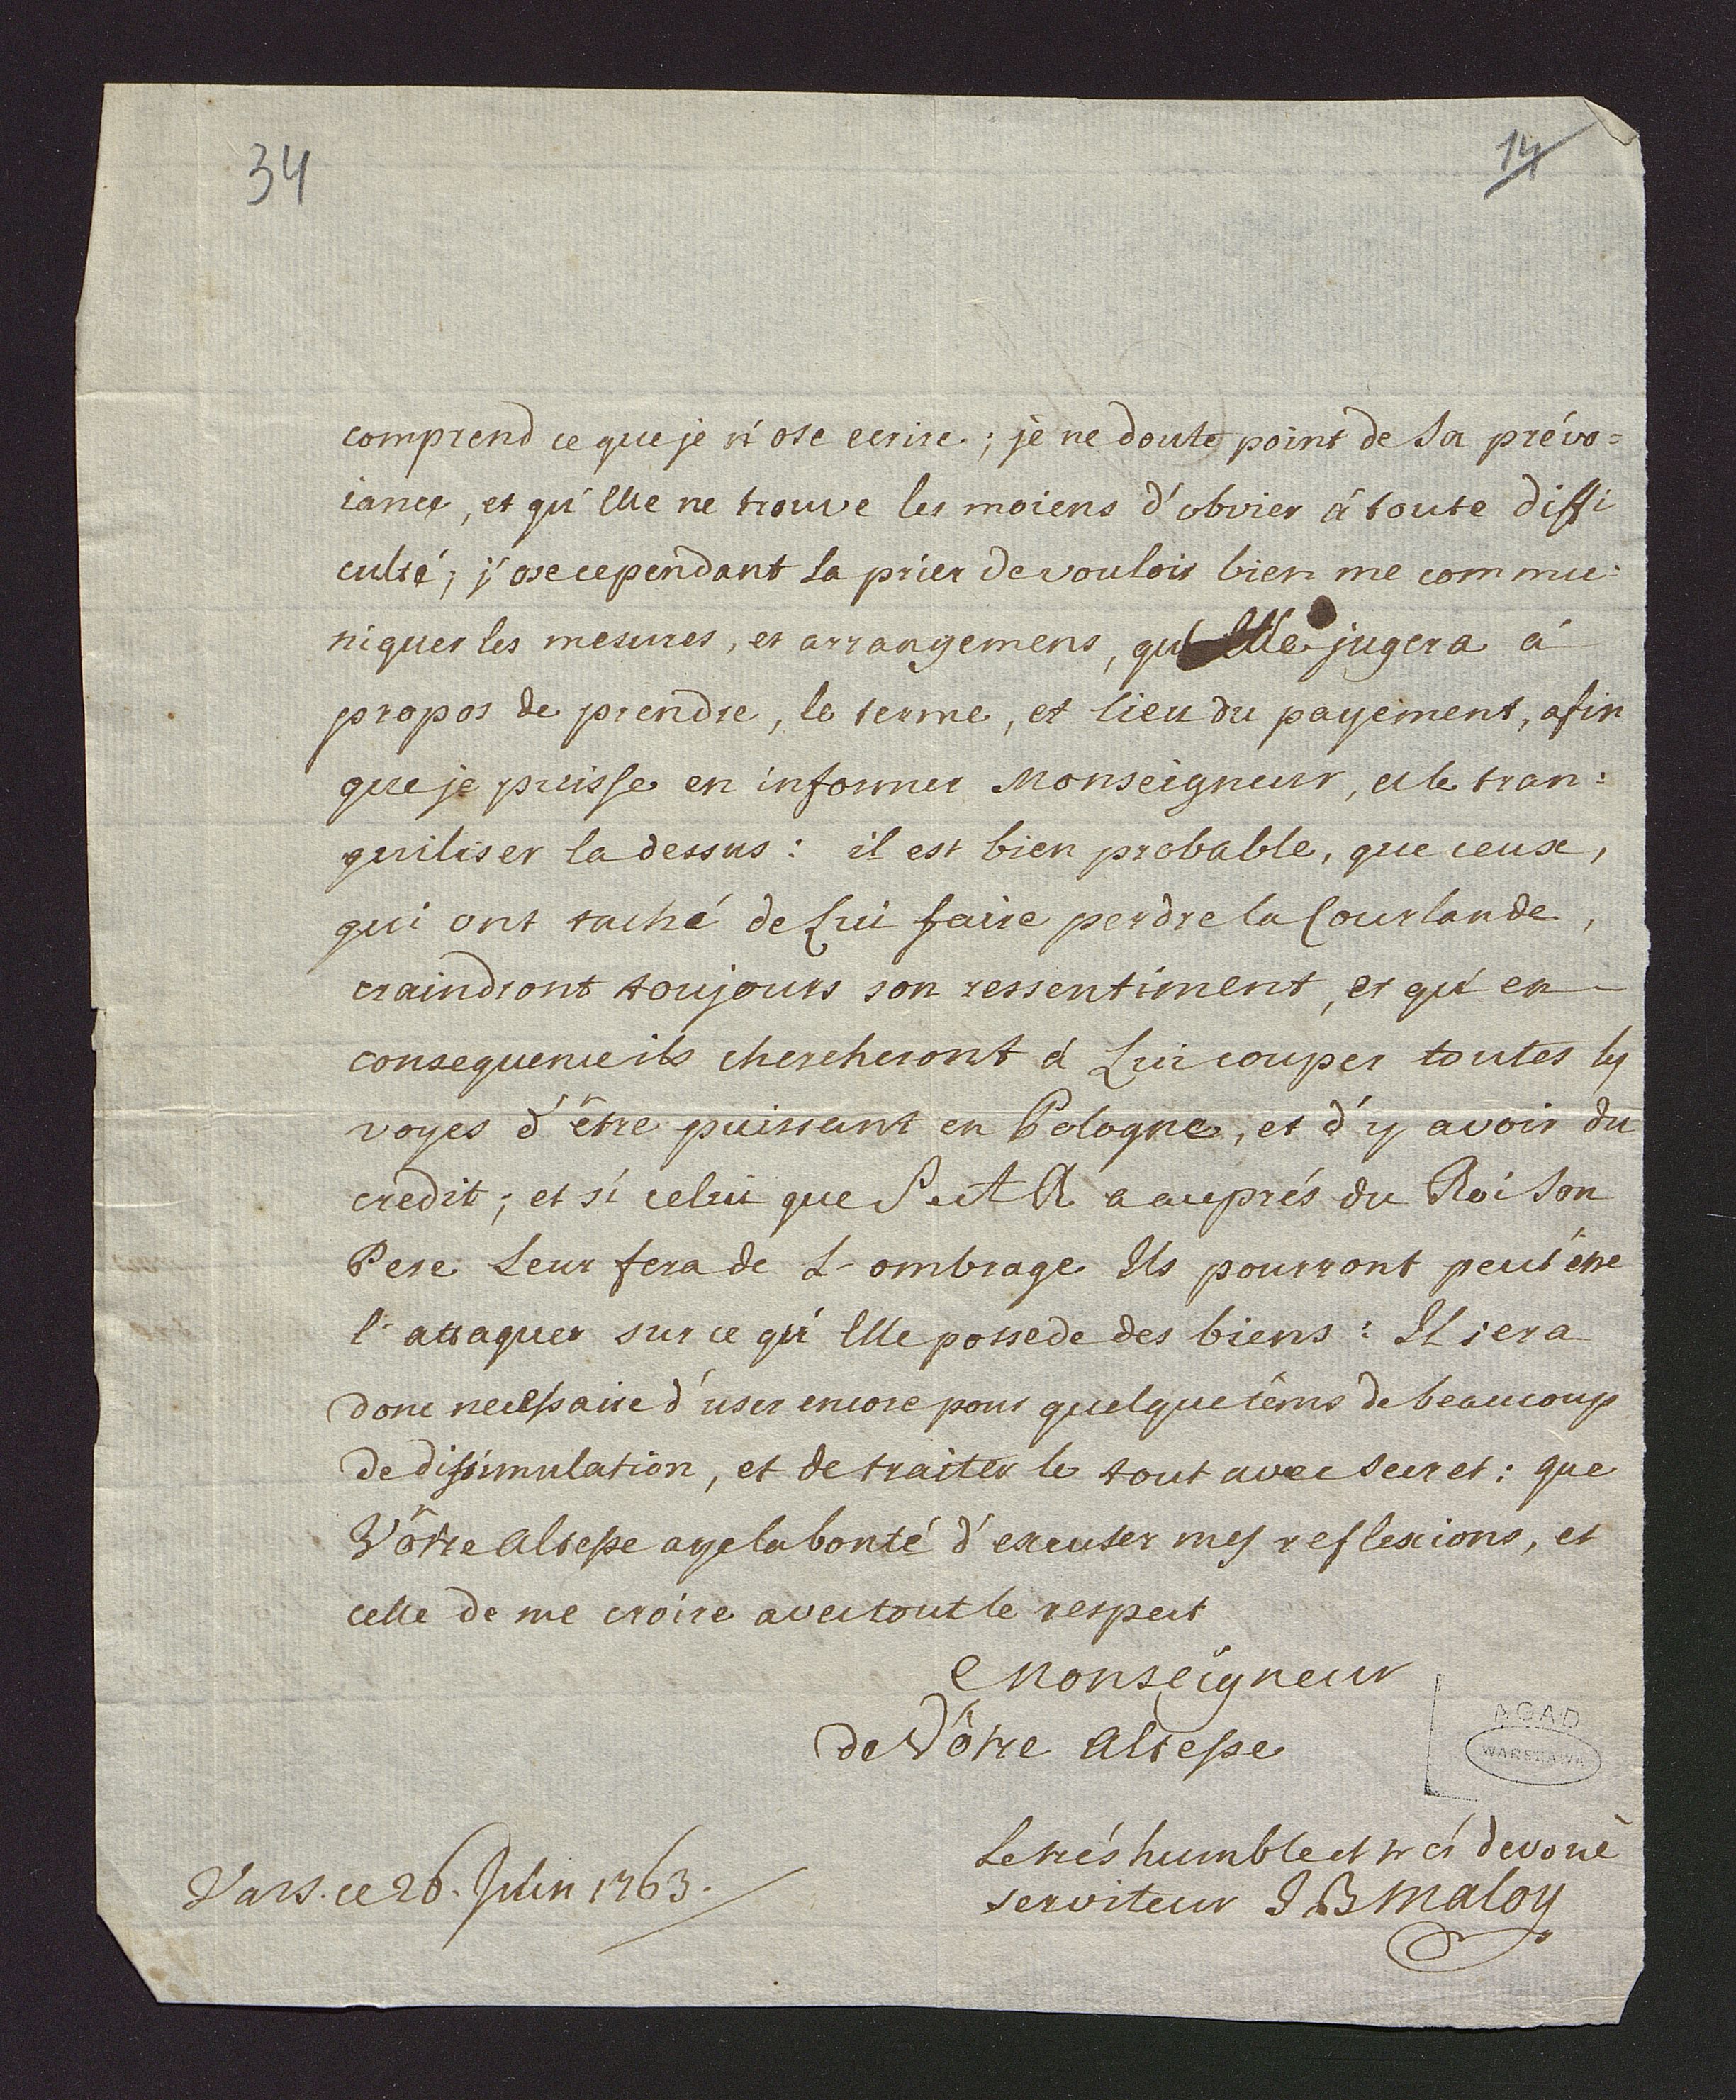 34
14
comprend ce que je n'ose ecrire; je ne doute point de Sa prévo=
iance, et qu'Elle ne trouve les moiens d'obvier á toute diffi
culté; j'ose cependant La prier de vouloir bien me commu=
niquer les mesures, et arrangemens, qu'Elle jugera á
propos de prendre, le terme, et lieu du payement, afin
que je puisse en informer Monseigneur, et le tran=
quiliser la dessus: il est bien probable, que ceux,
qui ont taché de Lui faire perdre la Courlande,
craindront toujours son ressentiment, et qu'en
consequence ils chercheront á Lui couper toutes les
voyes d'être puissant en Pologne, et d'y avoir du
credit; et si celui que S. A R a auprés du Roi Son
Pere Leur fera de L'ombrage Ils pourront peut être
l'attaquer sur ce qu'Elle possede des biens: Il sera
donc necessaire d'user encore pour quelque têms de beaucoup
de dissimulation, et de traiter le tout avec secret: que
Vôtre Altesse aye la bonté d'excuser mes reflexions, et
celle de me croire avec tout le respect
Monseigneur
de Vôtre Altesse
AGAD
WARSZAWA
Le trés humble et trés devoué
Vars. ce 26. Juin 1763.
serviteur J B Maloy